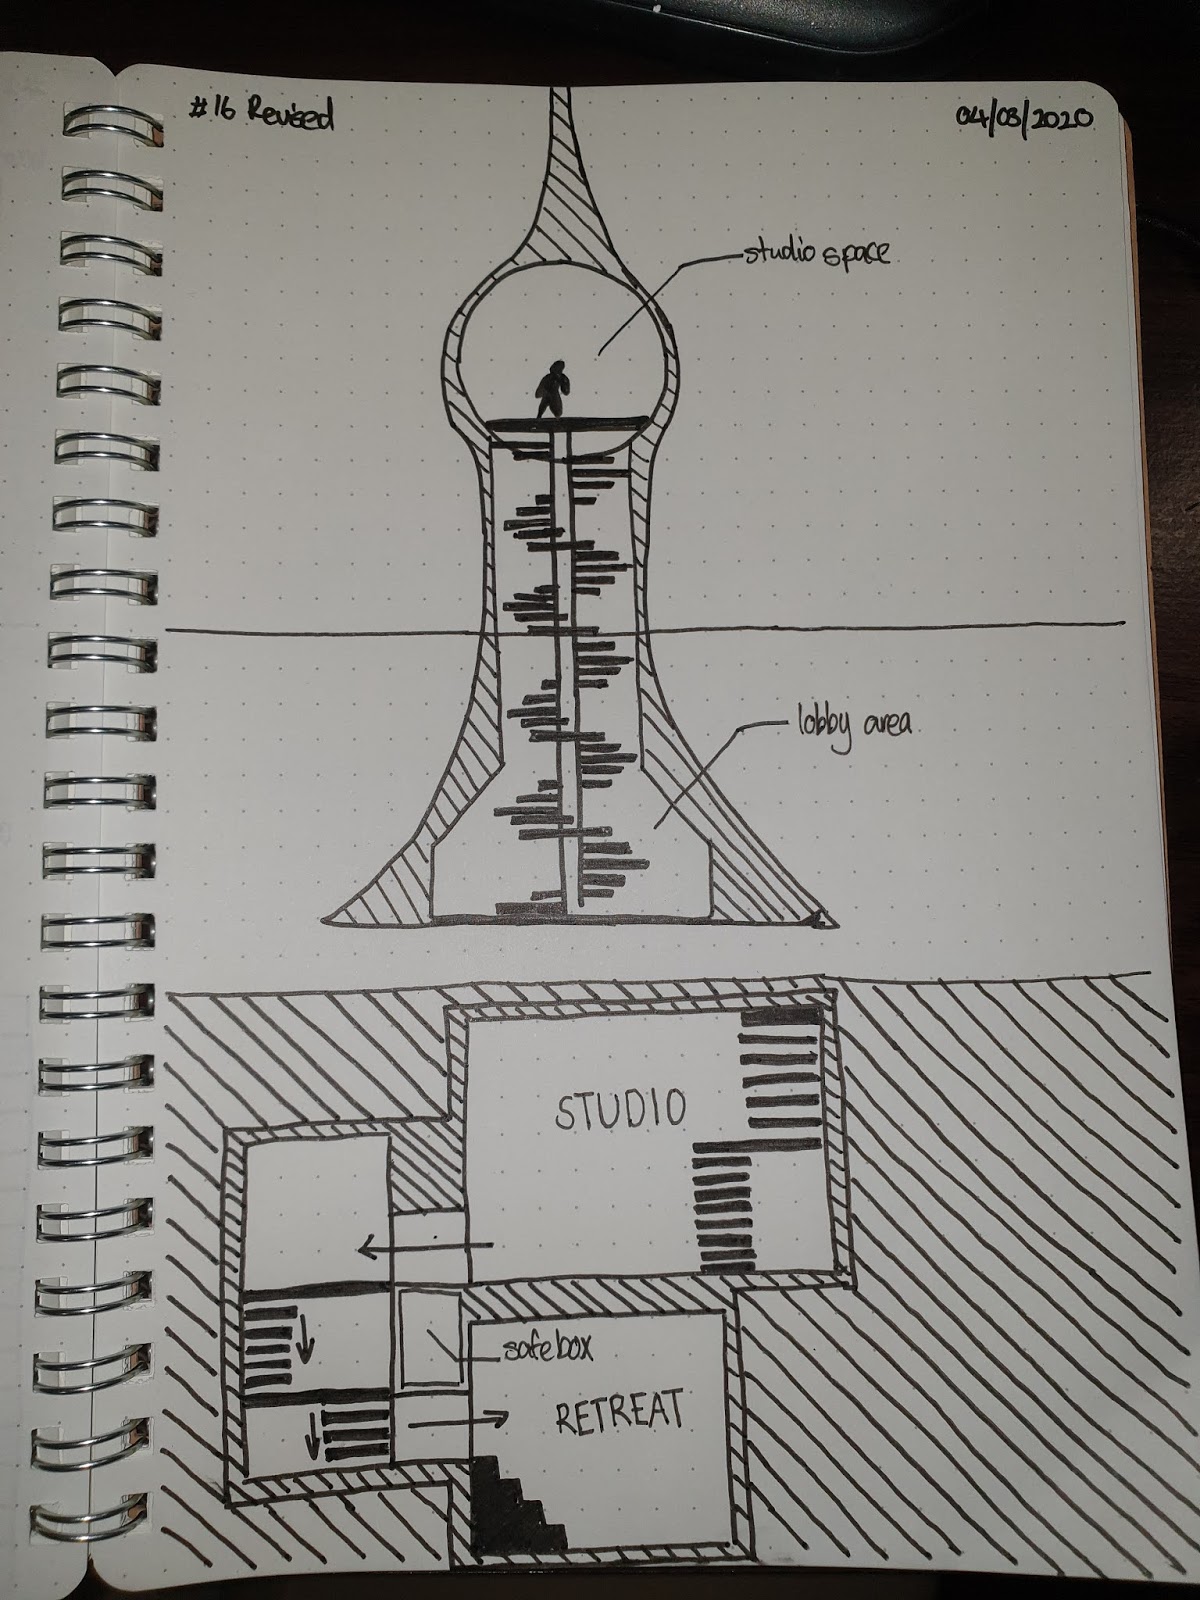 #16 Revised
04/03/2020
studio space
lobby area
STUDIO
safebox
RETREAT